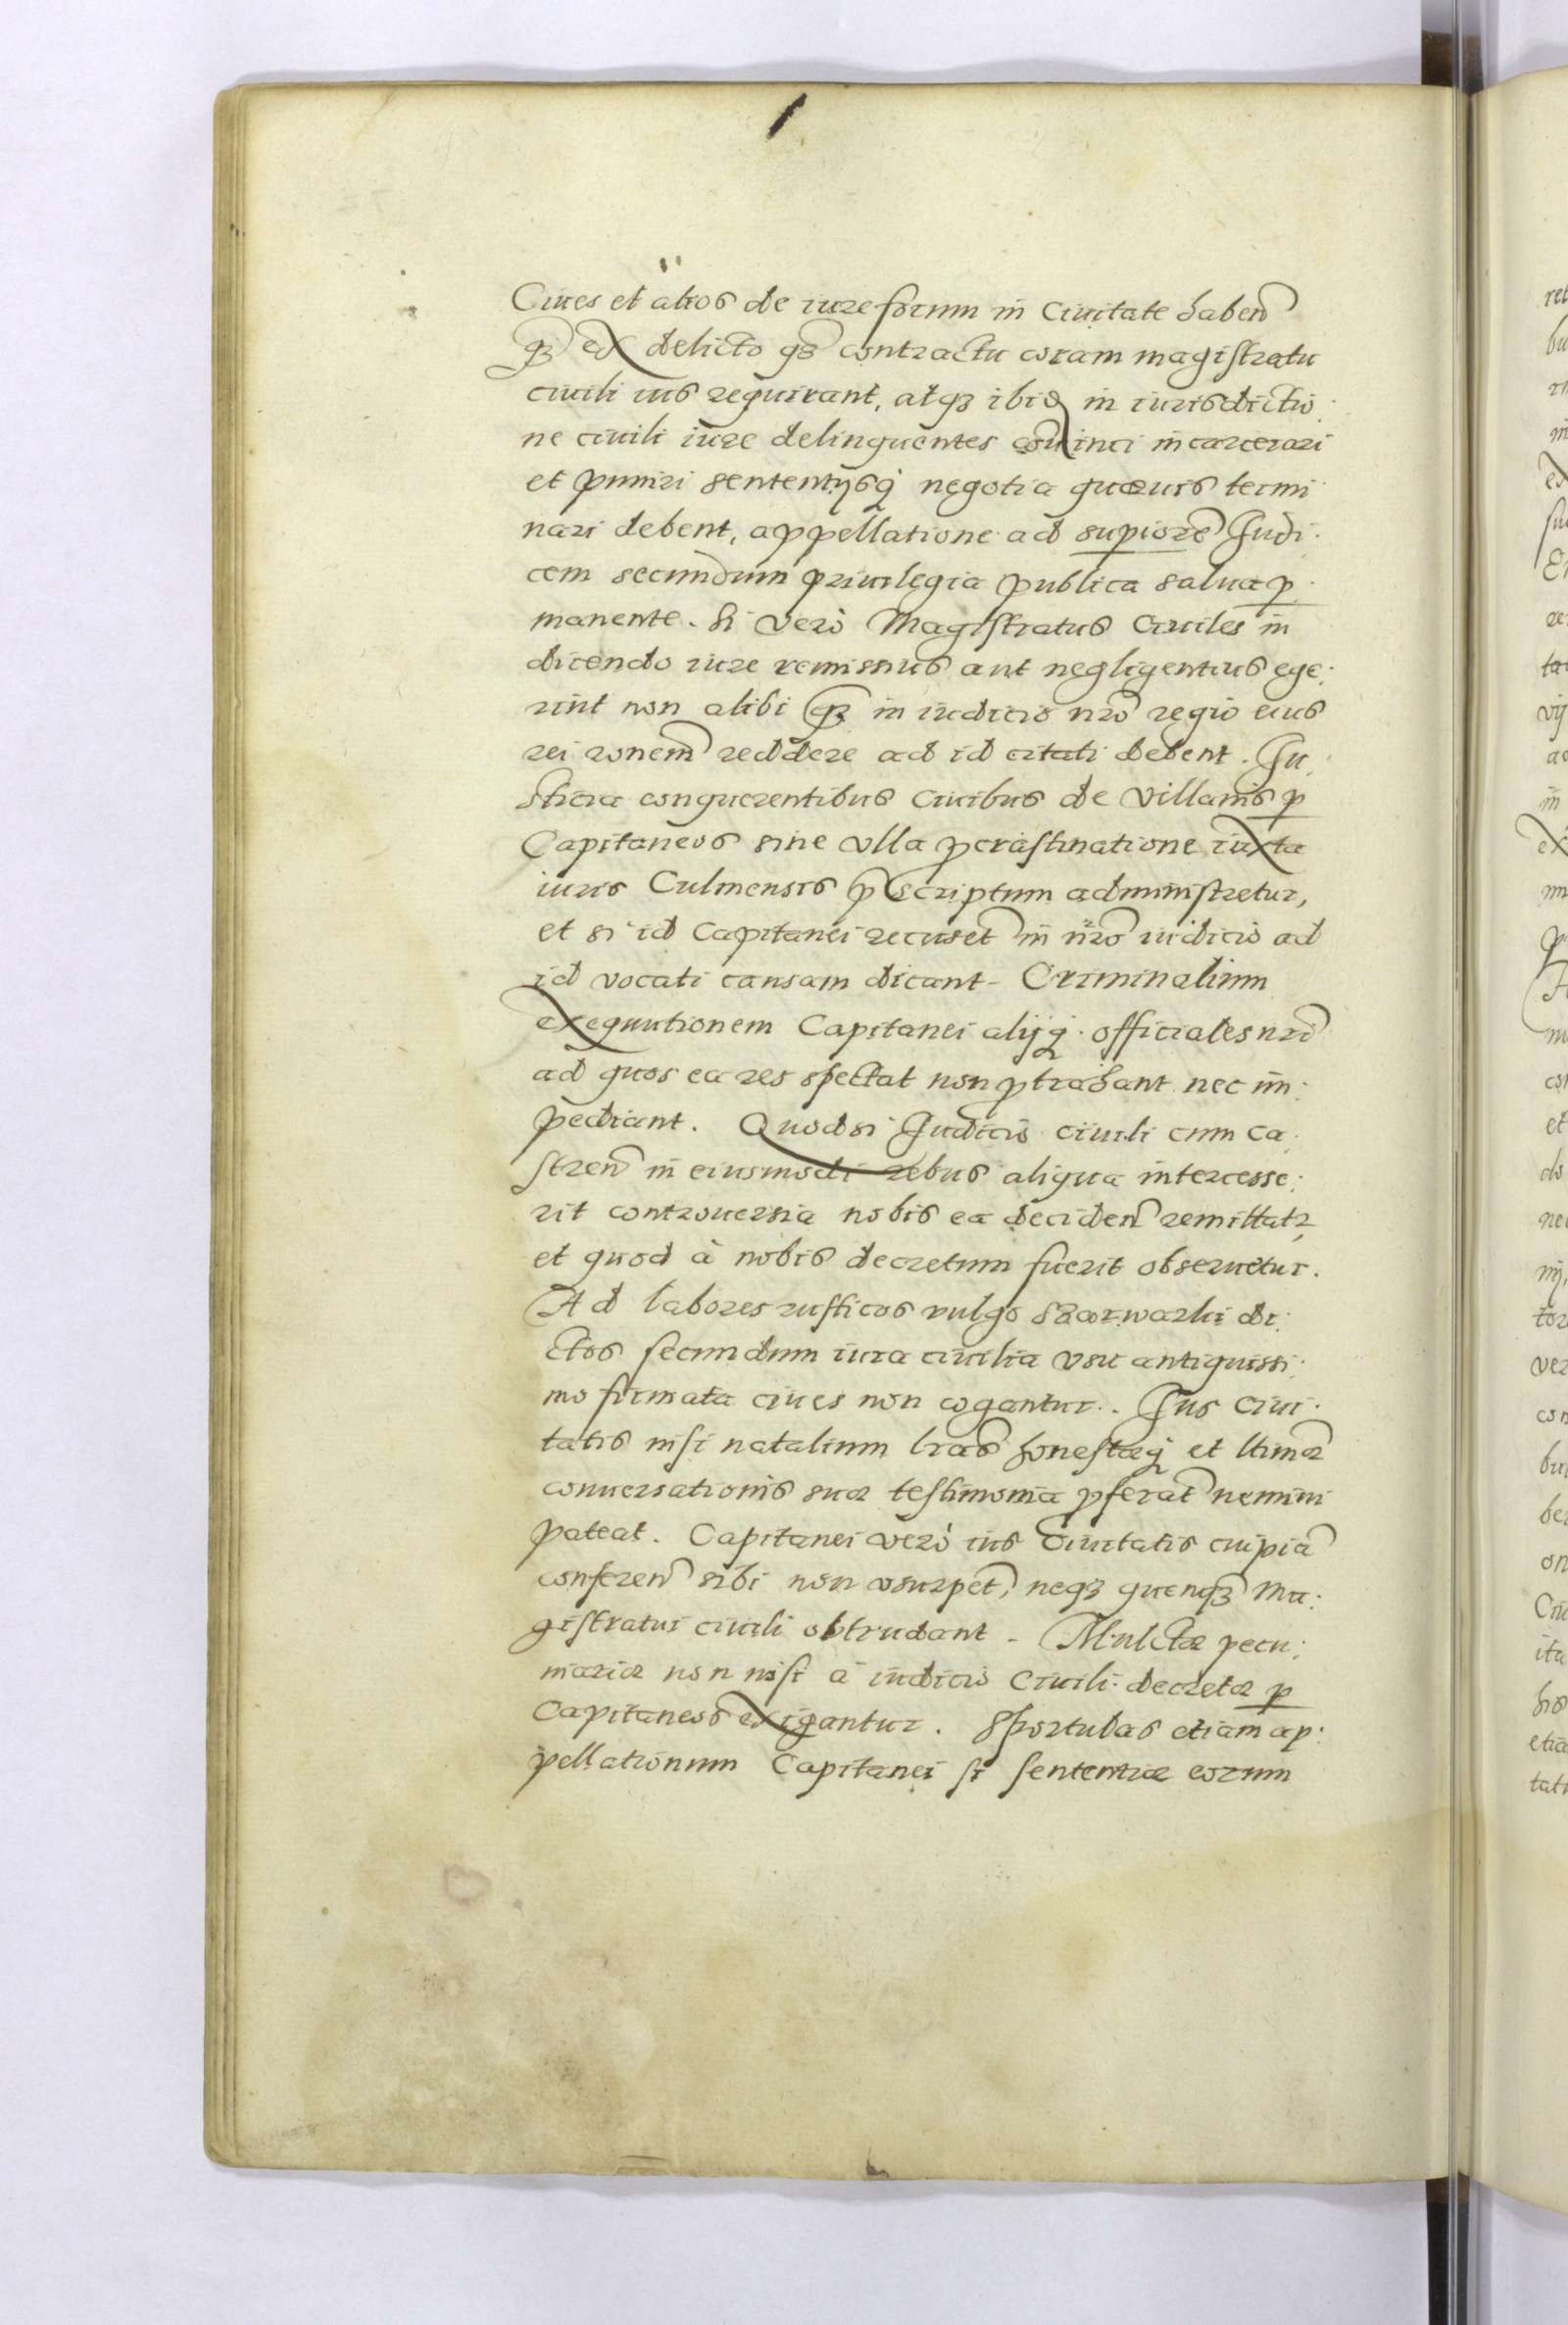 Ciues et alios de iure forum in Ciuitate haben̄
q̃ ex delicto q̃s contractu coram magistratu
ciuili ius requirant, atqꝫ ibid in iurisdictio:
ne ciuili iure delinquentes conuinci incarcerari
et puniri sententijsqꝫ negotia quæuis termi
nari debent, appellatione ad supiorē Judi:
cem secundum priuilegia publica salua p:
manente. Si verò Magistratus Ciuiles in
dicendo iure remissius aut negligentius ege:
rint non alibi qꝫ in iudicio nr̄o regio eius
rei rōnem reddere ad id citati debent. Ju:
sticia conquerentibus ciuibus de villanis p
Capitaneos sine vlla pcrastinatione iuxta
iuris Culmensis p̄scriptum administretur,
et si id Capitanei recuset̄ in nr̄o iudicio ad
id vocati causam dicant. Criminalium
exequutionem Capitanei alijqꝫ officiales nr̄i
ad quos ea res spectat non ptrahant nec im:
pediant. Quodsi Judicio ciuili cum ca:
stren̄ in eiusmodi rebus aliqua intercesse:
rit controuersia nobis ea deciden̄ remittatr,
et quod à nobis decretum fuerit obseruetur.
Ad labores rusticos vulgo szarwarki di:
ctos secundum iura ciuilia vsu antiquissi:
mo firmata ciues non cogantur. Jus Ciui:
tatis nisi natalium lr̄as honestæqꝫ et ltimæ
conuersationis suæ testimonia pferat̄ nemini
pateat. Capitanei verò ius Ciuitatis cuipiā
conferen̄ sibi non vsurpet̄, neqꝫ quenqꝫ Ma:
gistratui ciuili obtrudant. Mulctæ pecu:
niariæ non nisi à iudicio Ciuili decretæ p
Capitaneos exigantur. Sportulas etiam ap:
pellationum Capitanei si sententiæ eorum